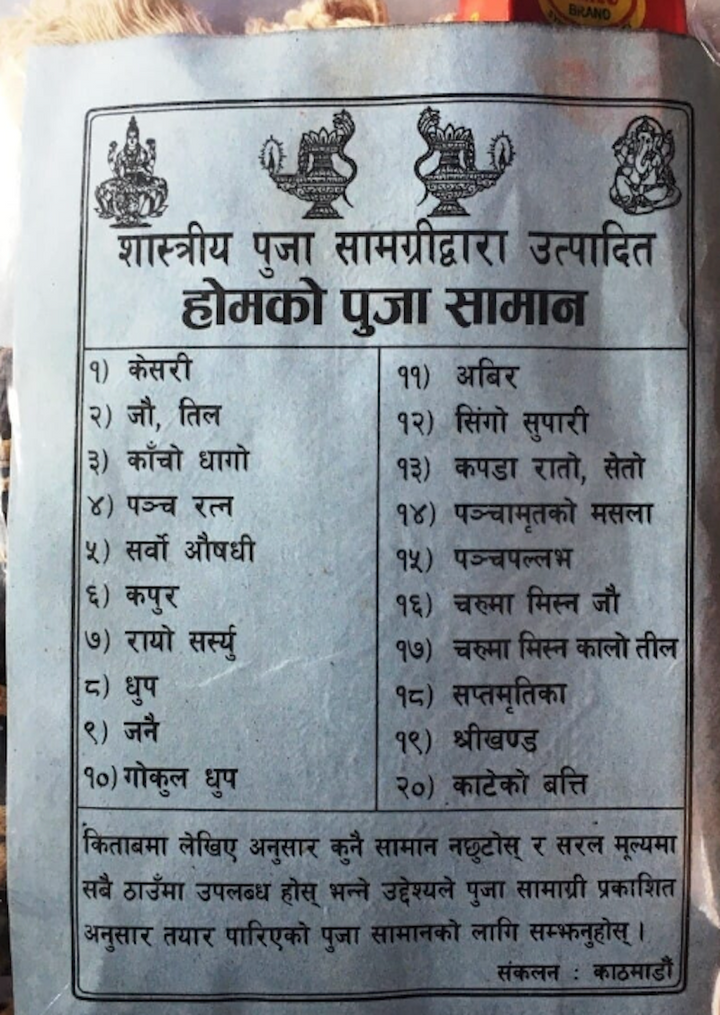 BRAND
शास्त्रीय पुजा सामग्रीद्वारा उत्पादित
होमको पुजा सामान
१) केसरी
२) जौ, तिल
३) काँचो धागो
४) पञ्च रत्न
५) सर्वो औषधी
६) कपुर
७) रायो सर्स्यु
८) धुप
९) जनै
१०) गोकुल धुप
११) अबिर
१२) सिंगो सुपारी
१३) कपडा रातो, सेतो
१४) पञ्चामृतको मसला
१५) पञ्चपल्लभ
१६) चरुमा मिस्न जौ
१७) चरुमा मिस्न कालो तील
१८) सप्तमृतिका
१९) श्रीखण्ड
२०) काटेको बत्ति
किताबमा लेखिए अनुसार कुनै सामान नछुटोस् र सरल मूल्यमा
सबै ठाउँमा उपलब्ध होस् भन्ने उद्देश्यले पुजा सामाग्री प्रकाशित
अनुसार तयार पारिएको पुजा सामानको लागि सम्झनुहोस् ।
संकलन : काठमाडौं